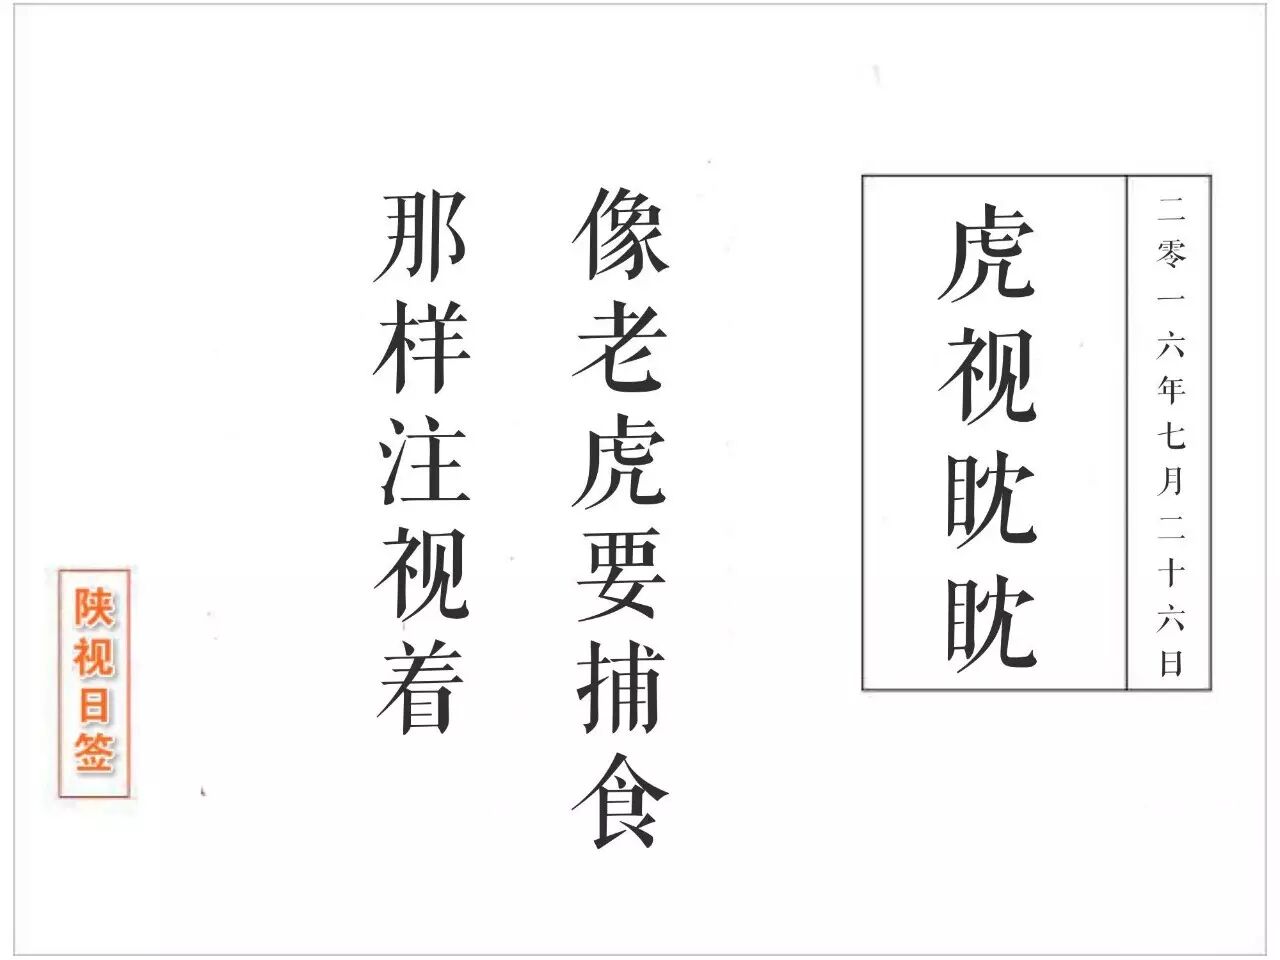 二零一六年七月二十六日
虎视眈眈
像老虎要捕食
那样注视着
陕视日签